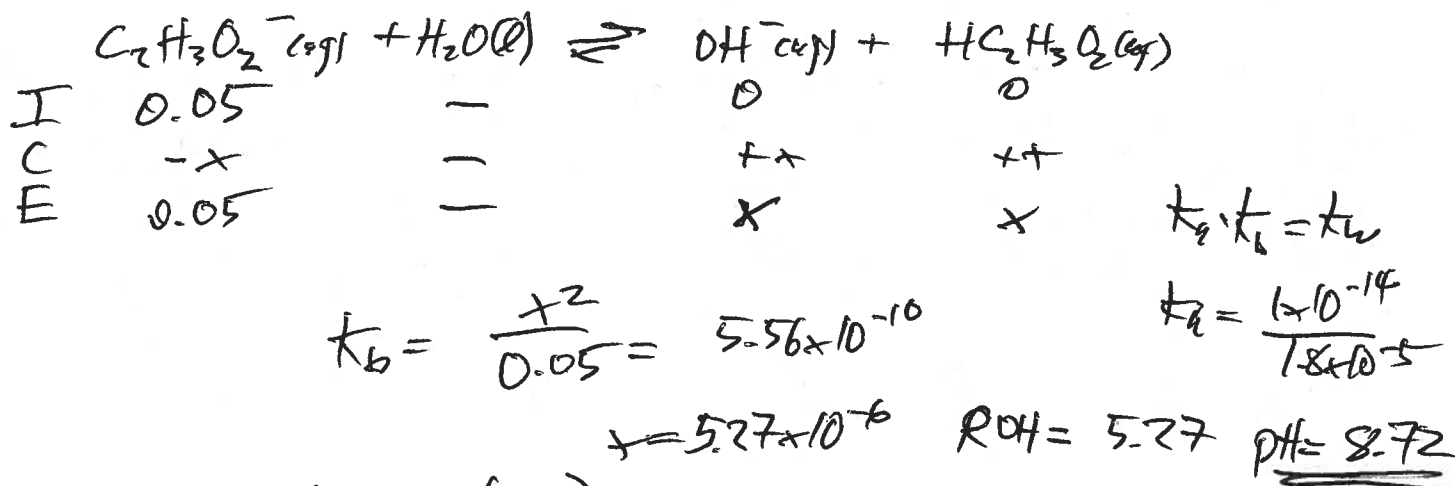 C₂H₃O₂⁻(aq) + H₂O(l) ⇌ OH⁻(aq) + HC₂H₃O₂(aq)
I 0.05 — 0 0
C -x — +x x+
E 0.05 — x x
Ka·Kb = Kw
Kb = x²/0.05 = 5.56x10⁻¹⁰
Ka = 1x10⁻¹⁴/1.8x10⁻⁵
x = 5.27x10⁻⁶ POH = 5.27 pH = 8.72